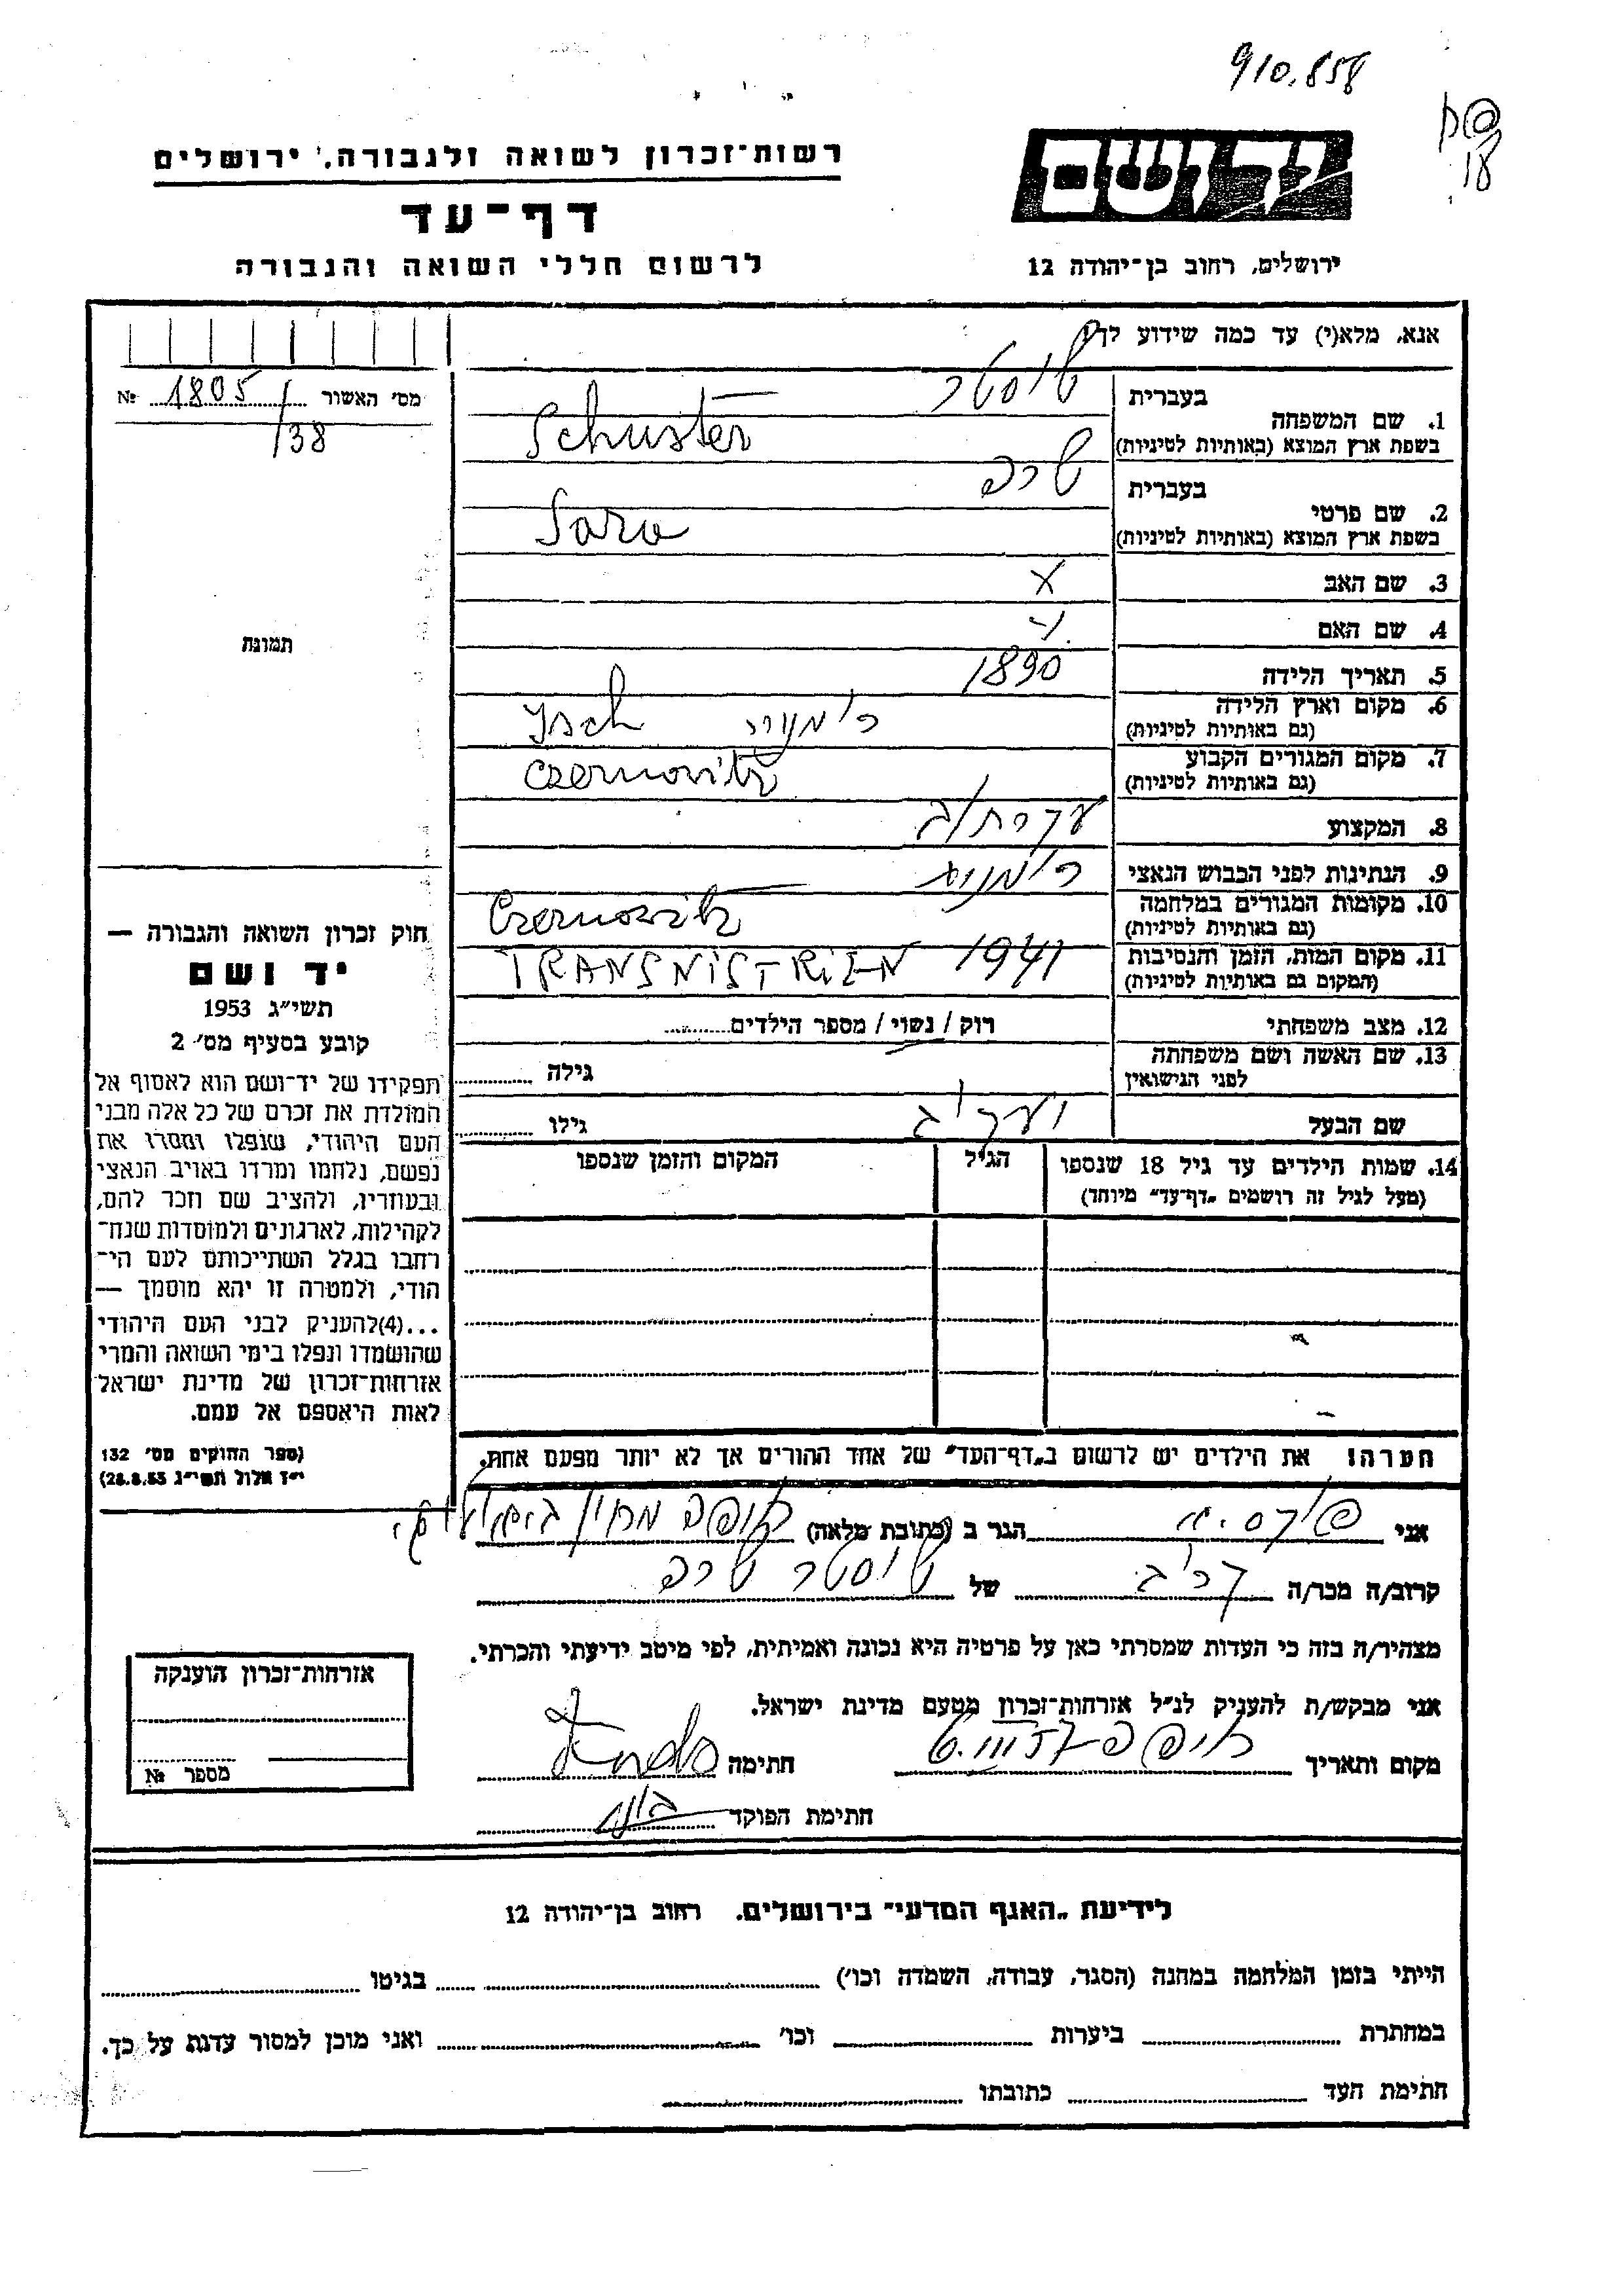 910.858
רשות־זכרון לשואה ולגבורה, ירושלים
דף־עד
לרשום חללי השואה והגבורה
יד ושם
ירושלים, רחוב בן־יהודה 12
אנא, מלא(י) עד כמה שידוע לך
מס׳ האשור 1805 №
/38
תמונה
בעברית שוסטר
1. שם המשפחה
בשפת ארץ המוצא (באותיות לטיניות) Schuster
בעברית שרה
2. שם פרטי
בשפת ארץ המוצא (באותיות לטיניות) Sara
3. שם האב X
4. שם האם
5. תאריך הלידה 1890
6. מקום וארץ הלידה
(גם באותיות לטיניות) רומניה
7. מקום המגורים הקבוע
(גם באותיות לטיניות) Czernovitz
8. המקצוע עקרת/ב
9. הנתינות לפני הכבוש הנאצי
10. מקומות המגורים במלחמה
(גם באותיות לטיניות) Czernovitz
11. מקום המות, הזמן והנסיבות
(המקום גם באותיות לטיניות) 1941 TRANSNISTRIEN
12. מצב משפחתי רוק / נשוי / מספר הילדים
13. שם האשה ושם משפחתה
לפני הנישואין
גילה
שם הבעל
גילו
14. שמות הילדים עד גיל 18 שנספו
(מעל לגיל זה רושמים „דף־עד״ מיוחד)
הגיל
המקום והזמן שנספו
הערה! את הילדים יש לרשום ב„דף־העד״ של אחד ההורים אך לא יותר מפעם אחת.
חוק זכרון השואה והגבורה —
יד ושם
תשי״ג 1953
קובע בסעיף מס׳ 2
תפקידו של יד־ושם הוא לאסוף אל
המולדת את זכרם של כל אלה מבני
העם היהודי, שנפלו ומסרו את
נפשם, נלחמו ומרדו באויב הנאצי
ובעוזריו, ולהציב שם וזכר להם,
לקהילות, לארגונים ולמוסדות שנח־
רחבו בגלל השתייכותם לעם הי־
הודי, ולמטרה זו יהא מוסמך —
...(4)להעניק לבני העם היהודי
שהושמדו ונפלו בימי השואה והמרי
אזרחות־זכרון של מדינת ישראל
לאות היאספם אל עמם.
(ספר החוקים מס׳ 132
י״ז אלול תשי״ג 28.8.53)
אני הגר ב (כתובת מלאה) חיפה
קרוב/ה מכר/ה של שוסטר שרה
מצהיר/ה בזה כי העדות שמסרתי כאן על פרטיה היא נכונה ואמיתית, לפי מיטב ידיעתי והכרתי.
אני מבקש/ת להעניק לנ״ל אזרחות־זכרון מטעם מדינת ישראל.
מקום ותאריך חיפה חתימה
חתימת הפוקד
אזרחות־זכרון הוענקה
מספר №
לידיעת „האגף המדעי״ בירושלים. רחוב בן־יהודה 12
הייתי בזמן המלחמה במחנה (הסגר, עבודה, השמדה וכו׳) בגיטו
במחתרת ביערות וכו׳ ואני מוכן למסור עדות על כך.
חתימת העד כתובתו